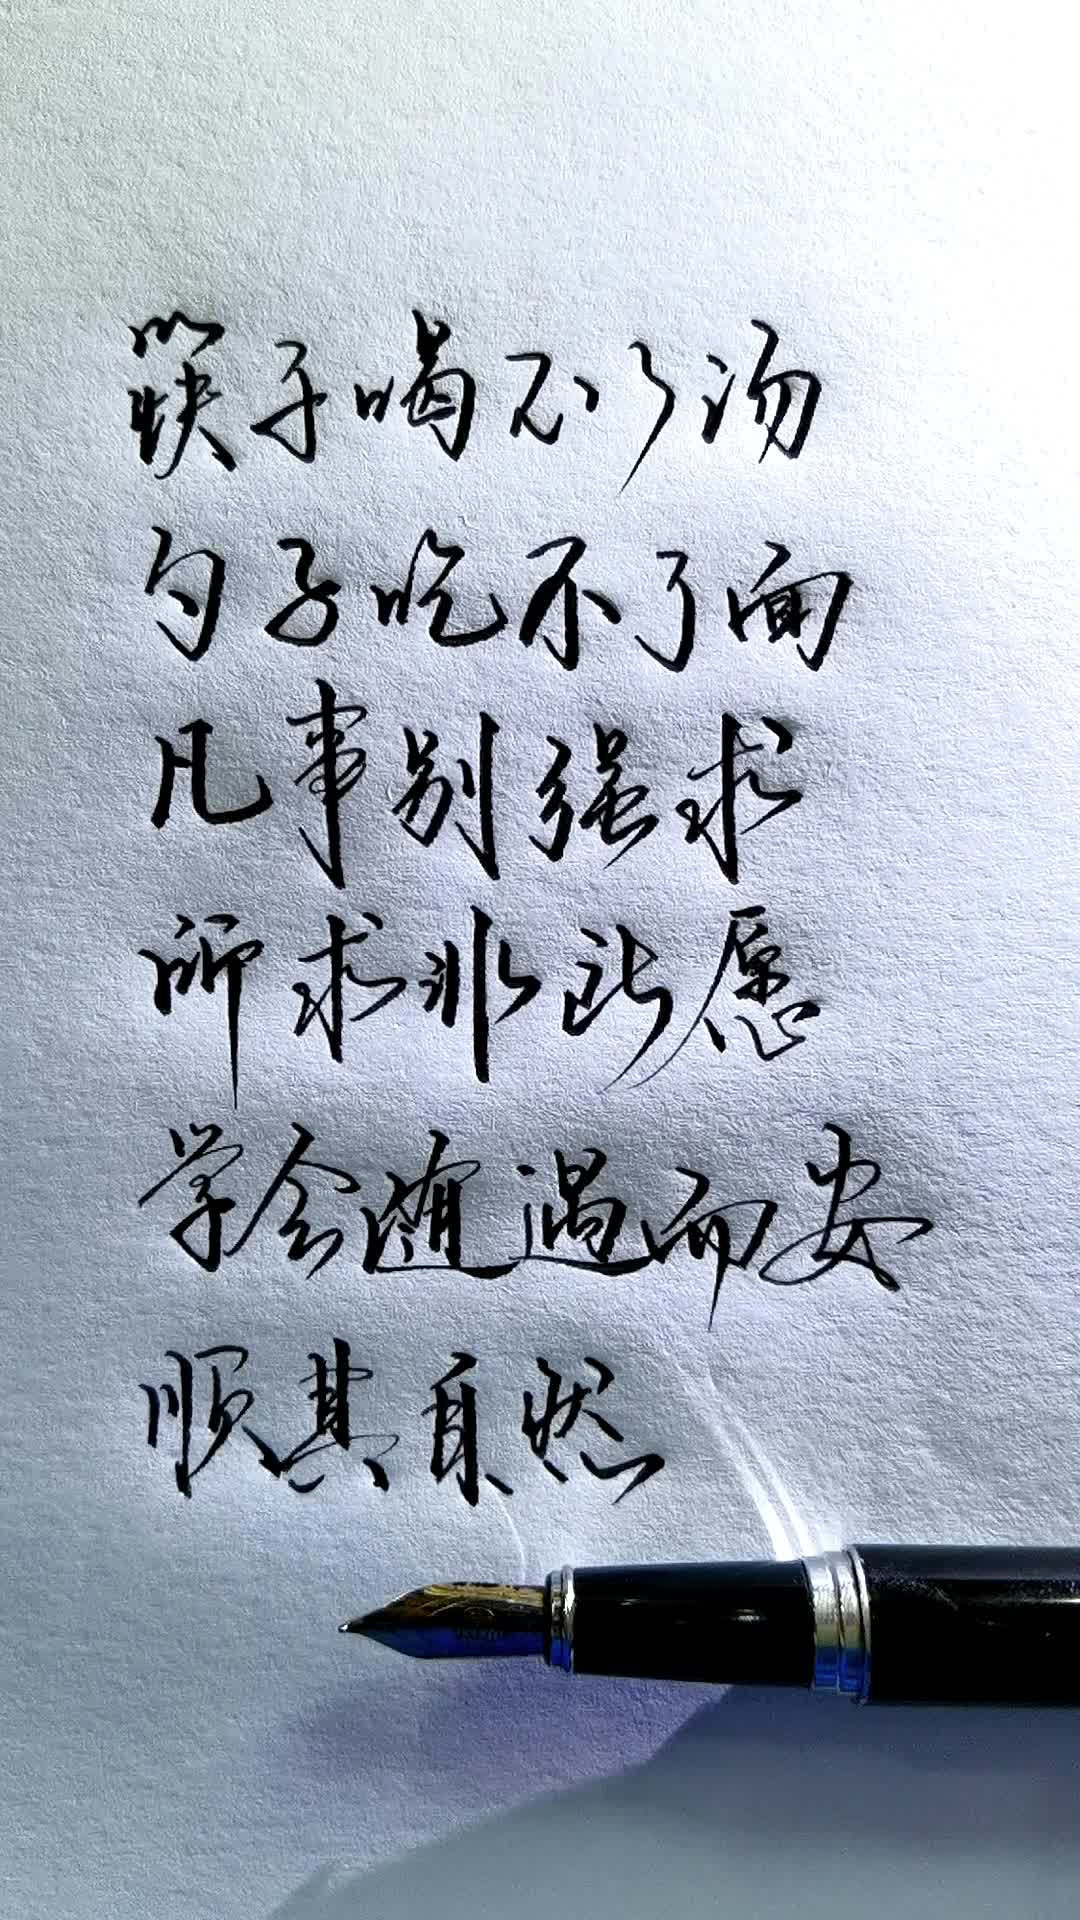 筷子喝不了汤
勺子吃不了面
凡事别强求
所求非所愿
学会随遇而安
顺其自然